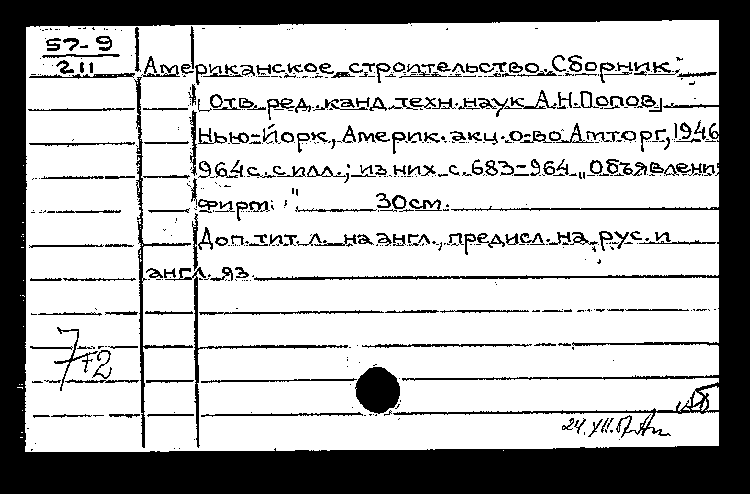 57-9
211
Американское строительство. Сборник.
Отв. ред. канд. техн. наук А.Н.Попов.
Нью-Йорк, Америк. акц. о-во Амторг, 1946
964 с. с илл.; из них с. 683-964 „Объявлени
фирм."   30 см.
Доп. тит. л. на англ., предисл. на рус. и
англ. яз.
7+2
24.XII.57